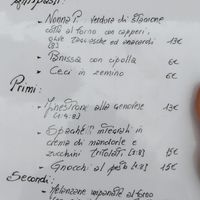 Antipasti:
- Nonna P. verdure di stagione
cotte al forno con capperi,
olive taggiasche ed anacardi 13€
[8]
- Brussa con cipolla 6€
- Ceci in zemino 6€
Primi:
- Finestroni alla genovese 13€
[1:4:8]
- Spaghetti integrali in
crema di mandorle e
zucchini tritolati [1:8] 15€
- Gnocchi al pesto [1:8] 15€
Secondi:
- Melanzane impanate al forno